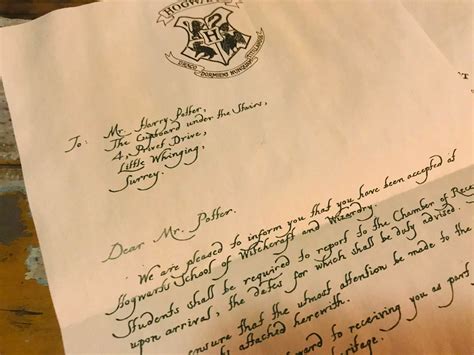 HOGWARTS
H
DRACO DORMIENS NUNQUAM TITILLANDUS
To: Mr. Harry Potter,
The Cupboard under the Stairs,
4, Privet Drive,
Little Whinging,
Surrey.
Dear Mr. Potter.
We are pleased to inform you that you have been accepted at
Hogwarts School of Witchcraft and Wizardry.
Students shall be required to report to the Chamber of Rece
upon arrival, the dates for which shall be duly advised.
ensure that the utmost attention be made to the
attached herewith.
ward to receiving you as part
heritage.